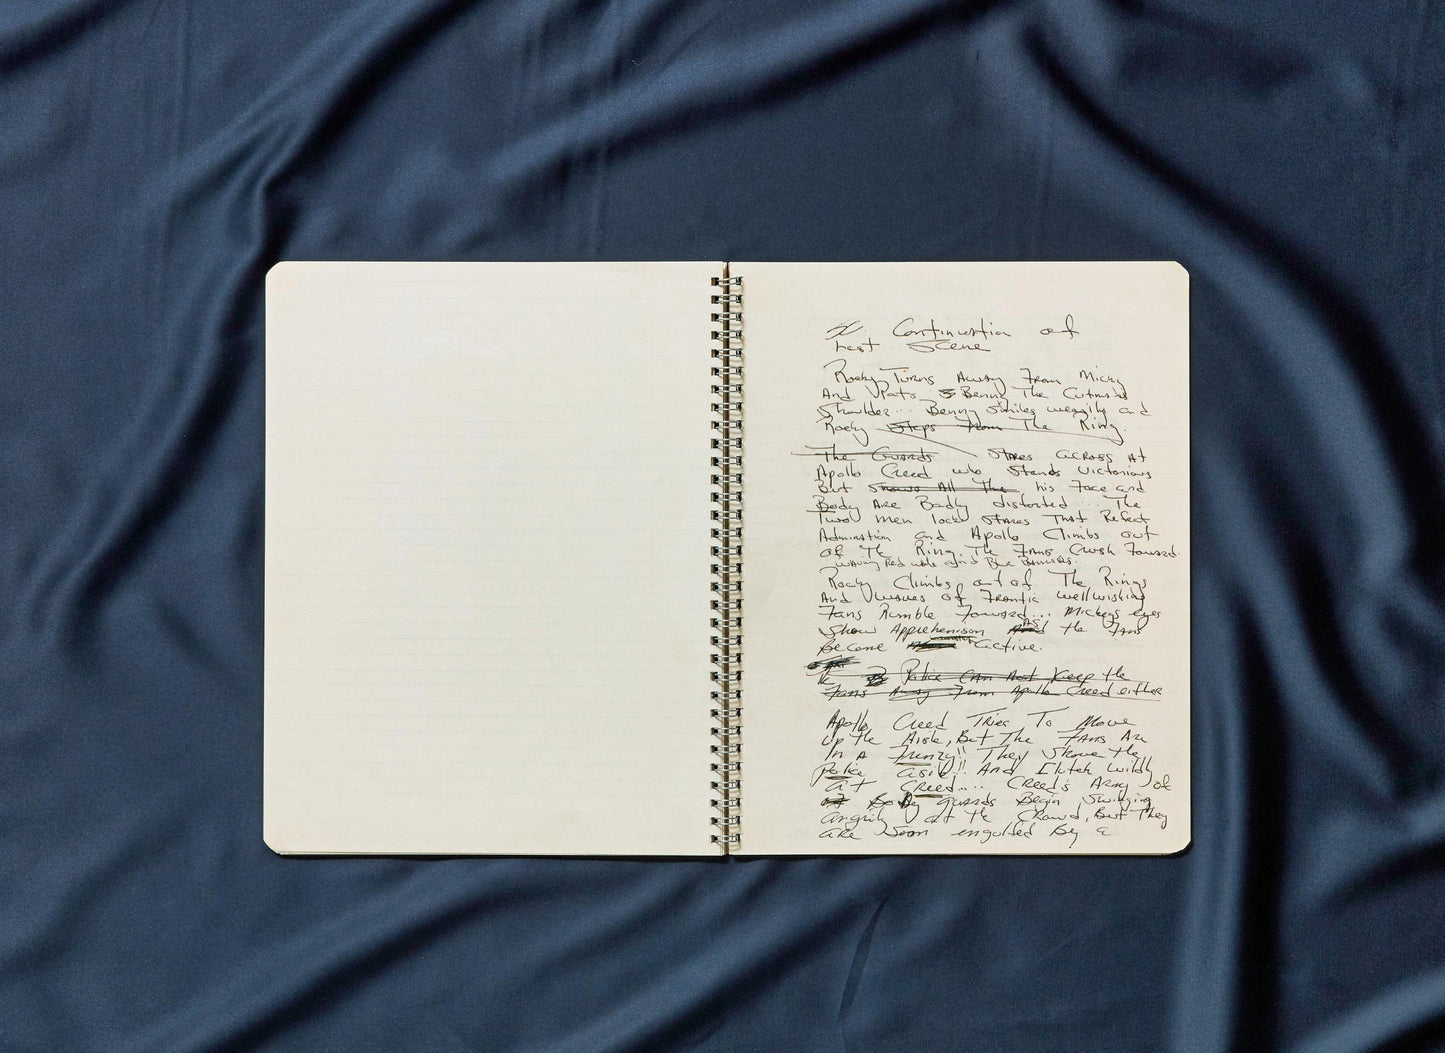 Continuation of
Last Scene
Rocky Turns Away From Micky
And Pats Benny The Cutmans
Shoulder... Benny smiles wearily and
Rocky Steps From The Ring.
The Guards Stares across at
Apollo Creed who Stands Victorious
But Shows All The his Face and
Body Are Badly distorted... The
Two men lock stares That Reflect
Admiration and Apollo Climbs out
of The Ring. The Fans Crush Forward
waving Red white and Blue Banners.
Rocky Climbs out of The Rings
And waves of Frantic wellwishing
Fans Rumble Forward... Mickeys eyes
Show Apprehenison As the Fans
Become active.
Police Can Not Keep the
Fans Away From Apollo Creed either
Apollo Creed Tries To Move
Up the Aisle, But The Fans Are
In A Frenzy!! They Shove the
Police aside!! And Clutch wildly
at Creed.... Creed's Army of
of Body guards Begin Swinging
angrily at the Crowd, But They
are Soon engulfed By a